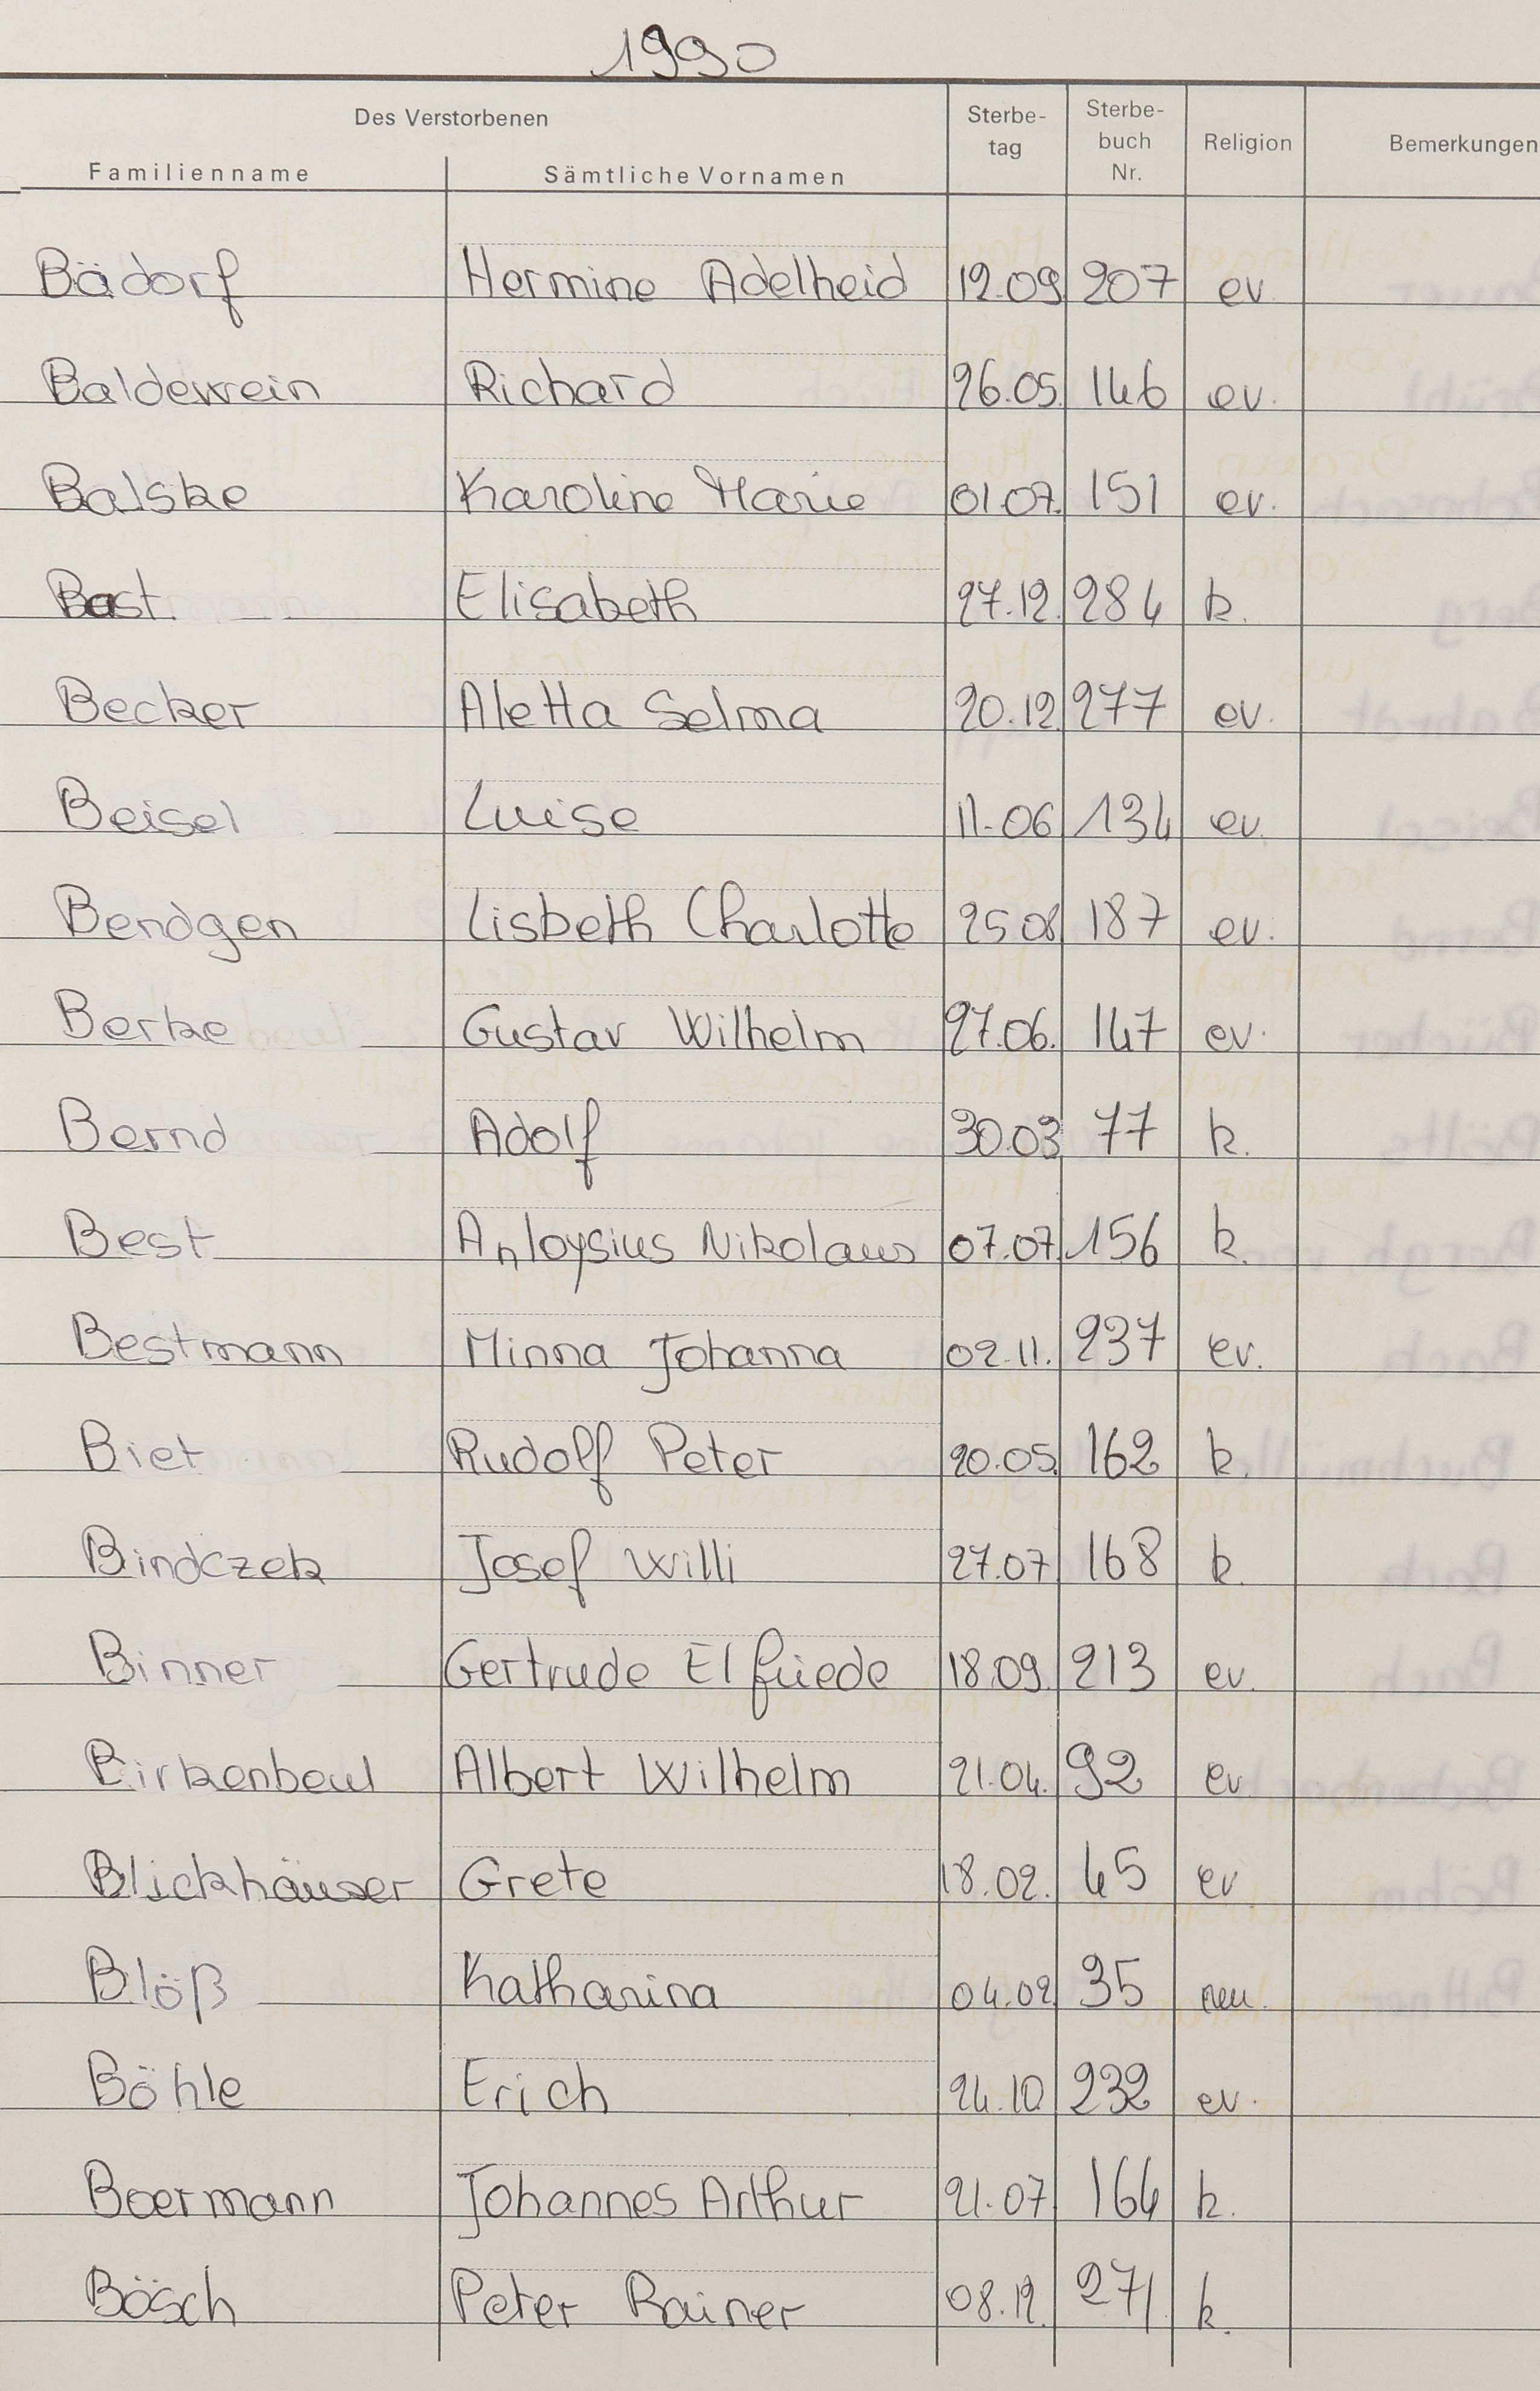 1990
Des Verstorbenen
Familienname Sämtliche Vornamen Sterbe-tag Sterbe-buch Nr. Religion Bemerkungen
Bädorf Hermine Adelheid 12.09 207 ev
Baldewein Richard 26.05. 146 ev.
Balske Karoline Marie 01.07. 151 ev.
Bast Elisabeth 27.12. 284 k.
Becker Aletta Selma 20.12. 277 ev.
Beisel Luise 11.06 134 ev.
Bendgen Lisbeth Charlotte 25.08 187 ev.
Berke Gustav Wilhelm 27.06. 147 ev.
Bernd Adolf 30.03 77 k.
Best Anloysius Nikolaus 07.07. 156 k.
Bestmann Minna Johanna 02.11. 237 ev.
Biet Rudolf Peter 20.05. 162 k.
Bindczek Josef Willi 27.07 168 k.
Binner Gertrude Elfriede 18.09. 213 ev.
Birkenbeul Albert Wilhelm 21.04. 92 ev
Blickhäuser Grete 18.02. 45 ev
Blöß Katharina 04.02 35
Böhle Erich 24.10. 232 ev.
Boermann Johannes Arthur 21.07 164 k.
Bösch Peter Rainer 08.12. 271 k.